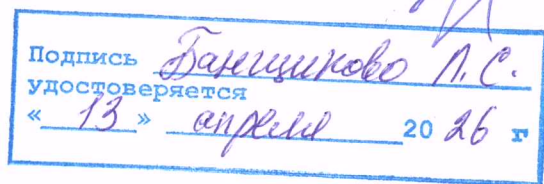 Подпись Банщиково Л.С.
удостоверяется
« 13 » апреля 20 26 г